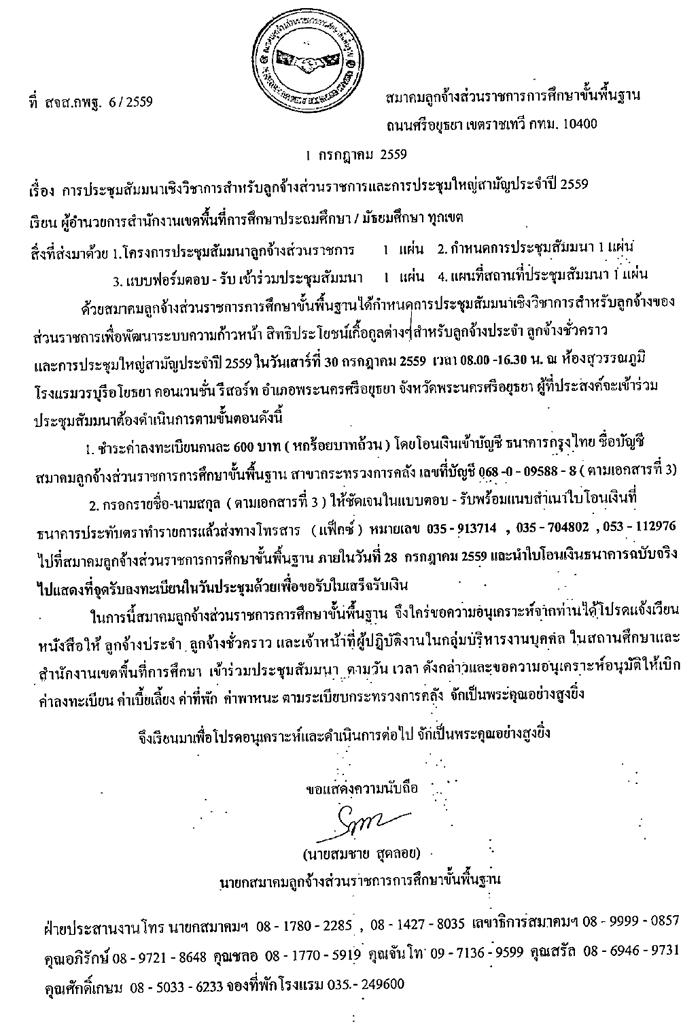 ที่ สจส.กพฐ. 6 / 2559
สมาคมลูกจ้างส่วนราชการการศึกษาขั้นพื้นฐาน
ถนนศรีอยุธยา เขตราชเทวี กทม. 10400
1 กรกฎาคม 2559
เรื่อง การประชุมสัมมนาเชิงวิชาการสำหรับลูกจ้างส่วนราชการและการประชุมใหญ่สามัญประจำปี 2559
เรียน ผู้อำนวยการสำนักงานเขตพื้นที่การศึกษาประถมศึกษา / มัธยมศึกษา ทุกเขต
สิ่งที่ส่งมาด้วย 1.โครงการประชุมสัมมนาลูกจ้างส่วนราชการ 1 แผ่น 2. กำหนดการประชุมสัมมนา 1 แผ่น
3. แบบฟอร์มตอบ - รับ เข้าร่วมประชุมสัมมนา 1 แผ่น 4. แผนที่สถานที่ประชุมสัมมนา 1 แผ่น
ด้วยสมาคมลูกจ้างส่วนราชการการศึกษาขั้นพื้นฐานได้กำหนดการประชุมสัมมนาเชิงวิชาการสำหรับลูกจ้างของ
ส่วนราชการเพื่อพัฒนาระบบความก้าวหน้า สิทธิประโยชน์เกื้อกูลต่างๆสำหรับลูกจ้างประจำ ลูกจ้างชั่วคราว
และการประชุมใหญ่สามัญประจำปี 2559 ในวันเสาร์ที่ 30 กรกฎาคม 2559 เวลา 08.00 -16.30 น. ณ ห้องสุวรรณภูมิ
โรงแรมวรบุรีอโยธยา คอนเวนชั่น รีสอร์ท อำเภอพระนครศรีอยุธยา จังหวัดพระนครศรีอยุธยา ผู้ที่ประสงค์จะเข้าร่วม
ประชุมสัมมนาต้องดำเนินการตามขั้นตอนดังนี้
1. ชำระค่าลงทะเบียนคนละ 600 บาท ( หกร้อยบาทถ้วน ) โดยโอนเงินเข้าบัญชี ธนาคารกรุงไทย ชื่อบัญชี
สมาคมลูกจ้างส่วนราชการการศึกษาขั้นพื้นฐาน สาขากระทรวงการคลัง เลขที่บัญชี 068 -0 - 09588 - 8 ( ตามเอกสารที่ 3)
2. กรอกรายชื่อ-นามสกุล ( ตามเอกสารที่ 3 ) ให้ชัดเจนในแบบตอบ - รับพร้อมแนบสำเนาใบโอนเงินที่
ธนาคารประทับตราทำรายการแล้วส่งทางโทรสาร ( แฟ็กซ์ ) หมายเลข 035 - 913714 , 035 - 704802 , 053 - 112976
ไปที่สมาคมลูกจ้างส่วนราชการการศึกษาขั้นพื้นฐาน ภายในวันที่ 28 กรกฎาคม 2559 และนำใบโอนเงินธนาคารฉบับจริง
ไปแสดงที่จุดรับลงทะเบียนในวันประชุมด้วยเพื่อขอรับใบเสร็จรับเงิน
ในการนี้สมาคมลูกจ้างส่วนราชการการศึกษาขั้นพื้นฐาน จึงใคร่ขอความอนุเคราะห์จากท่านได้โปรดแจ้งเวียน
หนังสือให้ ลูกจ้างประจำ ลูกจ้างชั่วคราว และเจ้าหน้าที่ผู้ปฏิบัติงานในกลุ่มบริหารงานบุคคล ในสถานศึกษาและ
สำนักงานเขตพื้นที่การศึกษา เข้าร่วมประชุมสัมมนา ตามวัน เวลา ดังกล่าวและขอความอนุเคราะห์อนุมัติให้เบิก
ค่าลงทะเบียน ค่าเบี้ยเลี้ยง ค่าที่พัก ค่าพาหนะ ตามระเบียบกระทรวงการคลัง จักเป็นพระคุณอย่างสูงยิ่ง
จึงเรียนมาเพื่อโปรดอนุเคราะห์และดำเนินการต่อไป จักเป็นพระคุณอย่างสูงยิ่ง
ขอแสดงความนับถือ
(นายสมชาย สุดลอย)
นายกสมาคมลูกจ้างส่วนราชการการศึกษาขั้นพื้นฐาน
ฝ่ายประสานงานโทร นายกสมาคมฯ 08 - 1780 - 2285 , 08 - 1427 - 8035 เลขาธิการสมาคมฯ 08 - 9999 - 0857
คุณอภิรักษ์ 08 - 9721 - 8648 คุณชลอ 08 - 1770 - 5919 คุณจันโท 09 - 7136 - 9599 คุณสรัล 08 - 6946 - 9731
คุณศักดิ์เกษม 08 - 5033 - 6233 จองที่พักโรงแรม 035 - 249600